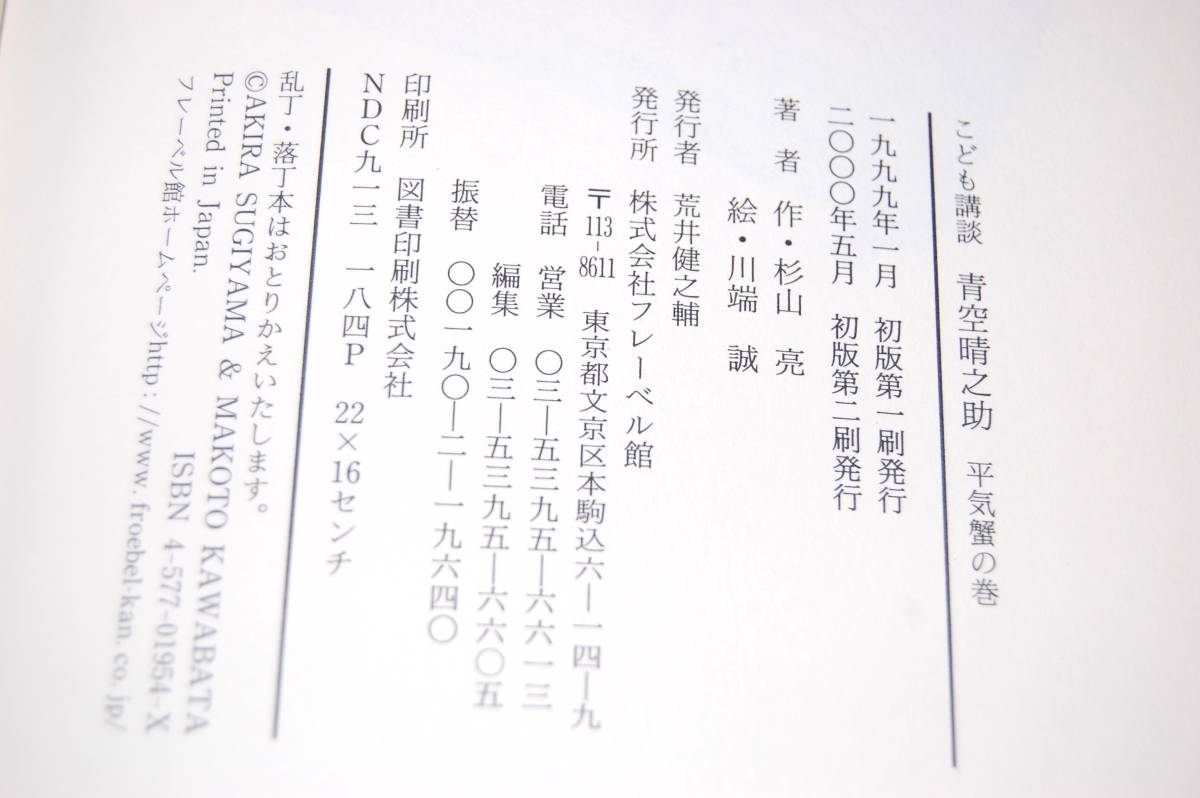 こども講談 青空晴之助 平気蟹の巻
一九九九年一月 初版第一刷発行
二〇〇〇年五月 初版第二刷発行
著者 作・杉山 亮
絵・川端 誠
発行者 荒井健之輔
発行所 株式会社フレーベル館
〒113-8611 東京都文京区本駒込六―一四―九
電話 営業 〇三―五三九五―六六一三
編集 〇三―五三九五―六六〇五
振替 〇〇一九〇―二―一九六四〇
印刷所 図書印刷株式会社
NDC九一三 一八四P 22×16センチ
乱丁・落丁本はおとりかえいたします。
©AKIRA SUGIYAMA & MAKOTO KAWABATA
Printed in Japan. ISBN 4-577-01954-X
フレーベル館ホームページhttp://www.froebel-kan.co.jp/